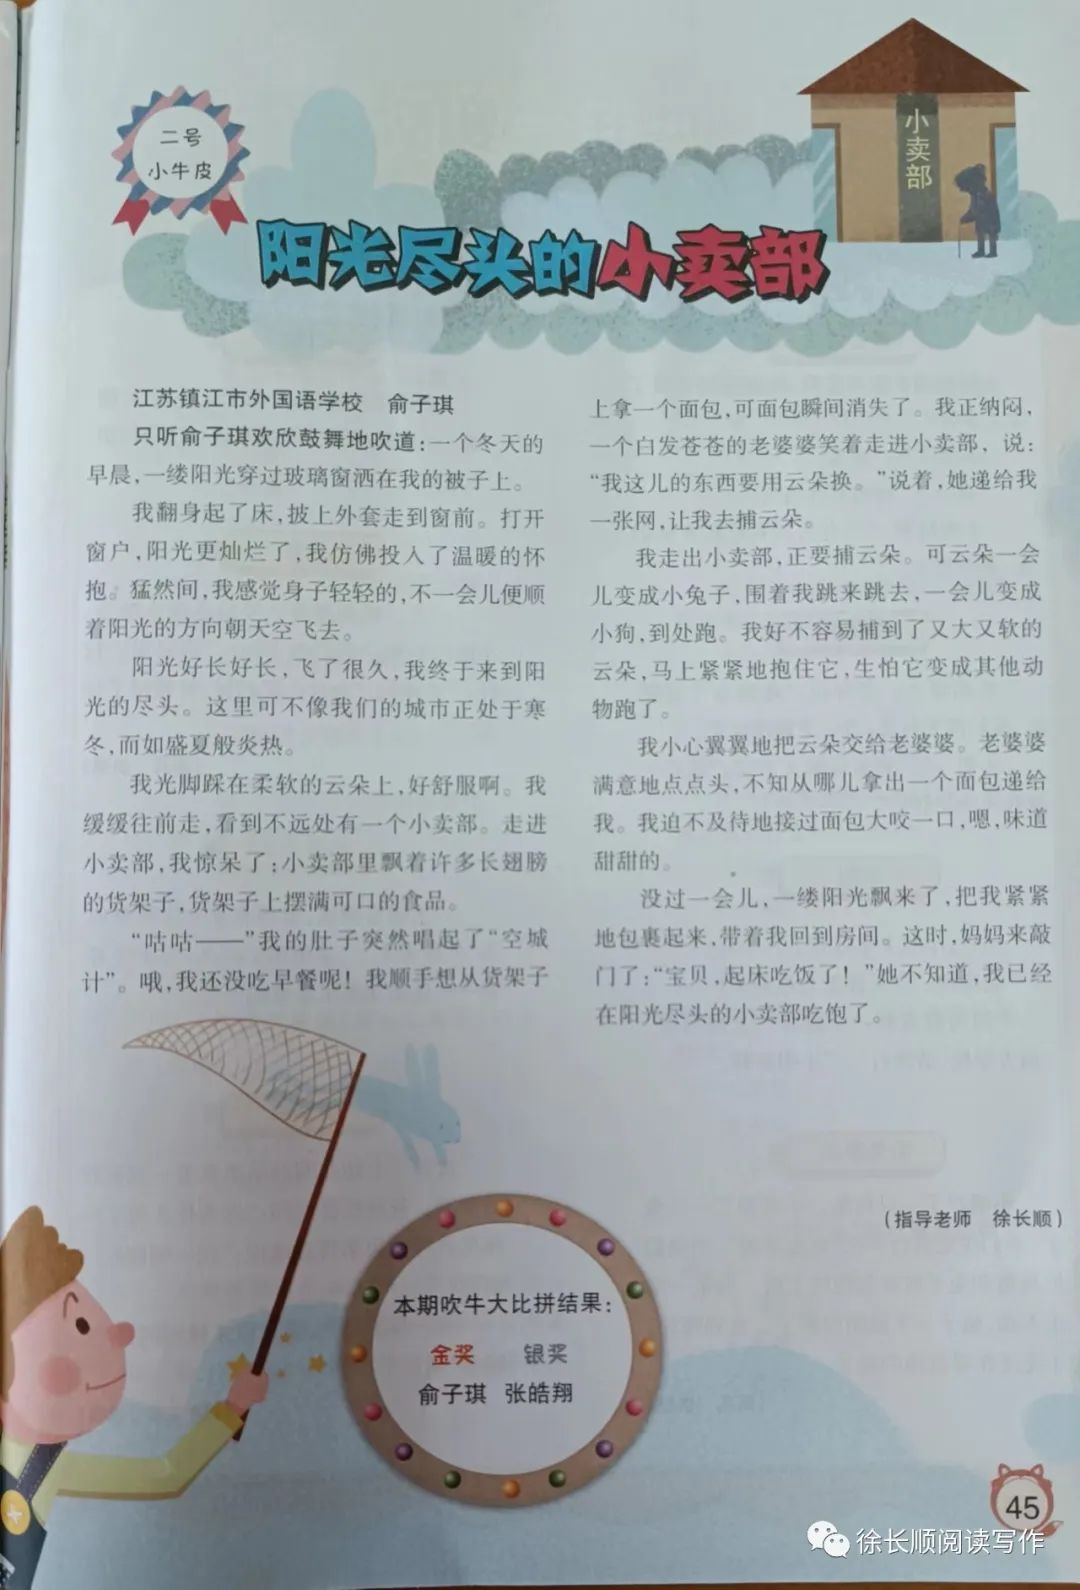 二号
小牛皮
小卖部
阳光尽头的小卖部
江苏镇江市外国语学校　俞子琪
只听俞子琪欢欣鼓舞地吹道：一个冬天的
早晨，一缕阳光穿过玻璃窗洒在我的被子上。
我翻身起了床，披上外套走到窗前。打开
窗户，阳光更灿烂了，我仿佛投入了温暖的怀
抱。猛然间，我感觉身子轻轻的，不一会儿便顺
着阳光的方向朝天空飞去。
阳光好长好长，飞了很久，我终于来到阳
光的尽头。这里可不像我们的城市正处于寒
冬，而如盛夏般炎热。
我光脚踩在柔软的云朵上，好舒服啊。我
缓缓往前走，看到不远处有一个小卖部。走进
小卖部，我惊呆了：小卖部里飘着许多长翅膀
的货架子，货架子上摆满可口的食品。
“咕咕——”我的肚子突然唱起了“空城
计”。哦，我还没吃早餐呢！我顺手想从货架子
上拿一个面包，可面包瞬间消失了。我正纳闷，
一个白发苍苍的老婆婆笑着走进小卖部，说：
“我这儿的东西要用云朵换。”说着，她递给我
一张网，让我去捕云朵。
我走出小卖部，正要捕云朵。可云朵一会
儿变成小兔子，围着我跳来跳去，一会儿变成
小狗，到处跑。我好不容易捕到了又大又软的
云朵，马上紧紧地抱住它，生怕它变成其他动
物跑了。
我小心翼翼地把云朵交给老婆婆。老婆婆
满意地点点头，不知从哪儿拿出一个面包递给
我。我迫不及待地接过面包大咬一口，嗯，味道
甜甜的。
没过一会儿，一缕阳光飘来了，把我紧紧
地包裹起来，带着我回到房间。这时，妈妈来敲
门了：“宝贝，起床吃饭了！”她不知道，我已经
在阳光尽头的小卖部吃饱了。
（指导老师　徐长顺）
本期吹牛大比拼结果：
金奖　银奖
俞子琪　张皓翔
45
徐长顺阅读写作